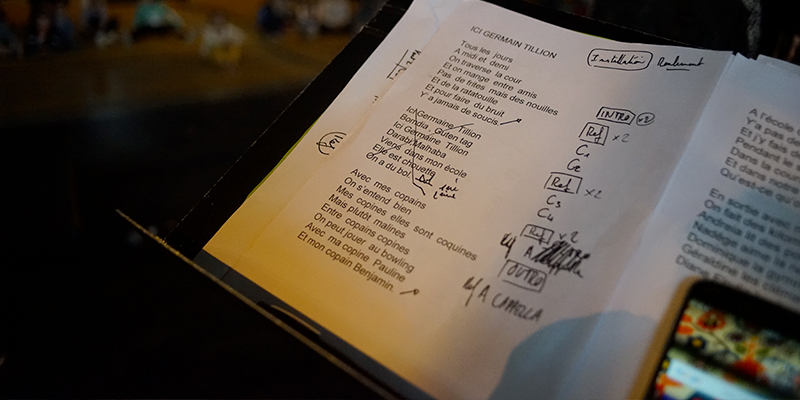 ICI GERMAIN TILLION
Installation Roulement
Tous les jours
A midi et demi
On traverse la cour
Et on mange entre amis
Pas de frites mais des nouilles
Et de la ratatouille
Et pour faire du bruit
Y'a jamais de soucis
Ici Germaine Tillion
Bondia, Guten tag
Ici Germaine Tillion
Darabi Malhaba
Viens dans mon école
Elle est chouette
On a du bol
Avec mes copains
On s'entend bien
Mes copines elles sont coquines
Mais plutôt malines
Entre copains copines
On peut jouer au bowling
Avec ma copine Pauline
Et mon copain Benjamin.
INTRO x2
Ref x2
C1
C2
Ref x2
C3
C4
Ref x2
A
OUTRO
A CAPPELLA
A l'école
Y'a pas de
Et j'y fais
Pendant la
Dans la cour
Et dans notre
Qu'est-ce qu
En sortie
On fait des